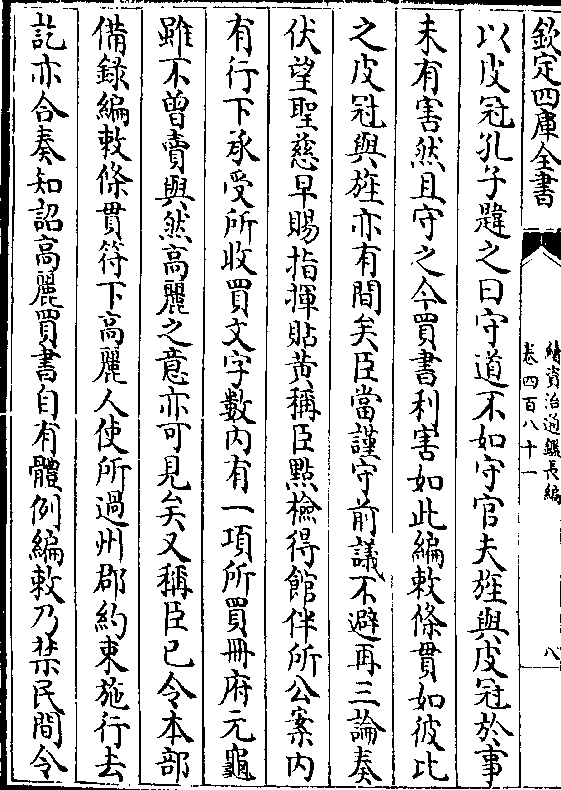 欽定四庫全書
續資治通鑑長編
卷四百八十一
八
以皮冠孔子韙之曰守道不如守官夫旌與皮冠於事
未有害然且守之今買書利害如此編敕條貫如彼比
之皮冠與旌亦有間矣臣當謹守前議不避再三論奏
伏望聖慈早賜指揮貼黃稱臣點檢得館伴所公案內
有行下承受所收買文字數內有一項所買冊府元龜
雖不曾賣與然高麗之意亦可見矣又稱臣已令本部
備錄編敕條貫符下高麗人使所過州郡約束施行去
訖亦合奏知詔高麗買書自有體例編敕乃禁民間令